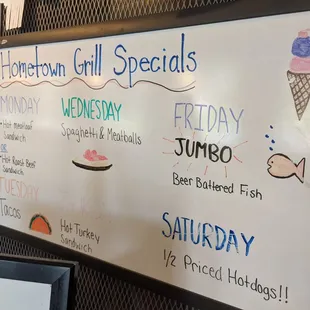 Hometown Grill Specials
MONDAY
• Hot meatloaf
Sandwich
OR
• Hot Roast Beef
Sandwich
TUESDAY
Tacos
WEDNESDAY
Spaghetti & Meatballs
Hot Turkey
Sandwich
FRIDAY
JUMBO
Beer Battered Fish
SATURDAY
1/2 Priced Hotdogs!!